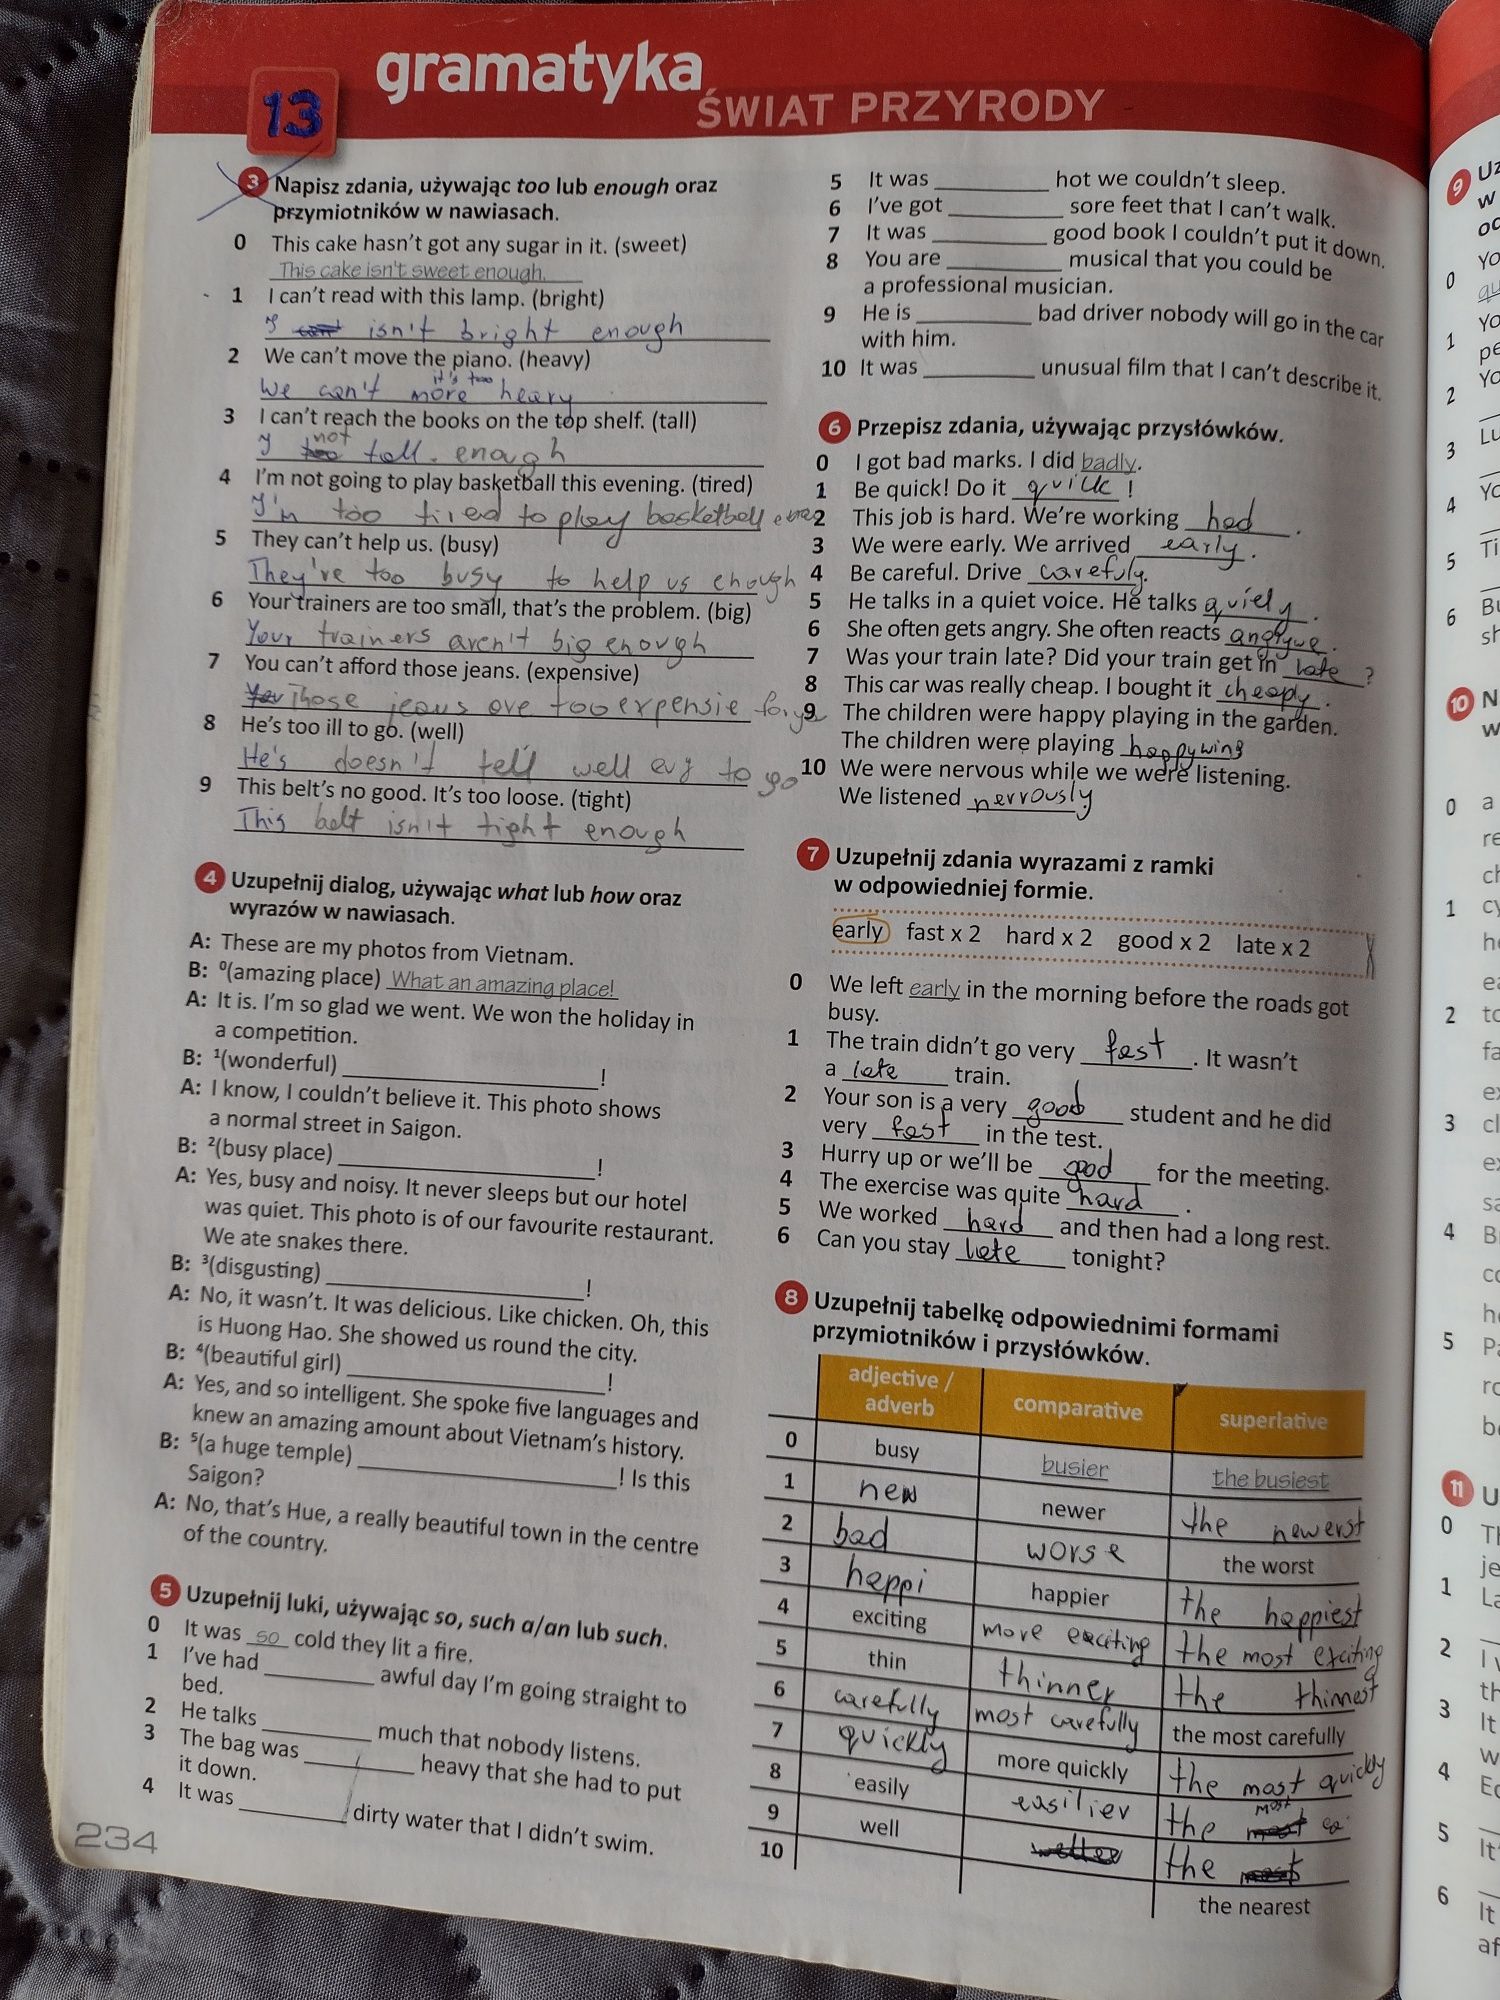 gramatyka
13
ŚWIAT PRZYRODY
3 Napisz zdania, używając too lub enough oraz
przymiotników w nawiasach.
0 This cake hasn't got any sugar in it. (sweet)
This cake isn't sweet enough.
1 I can't read with this lamp. (bright)
isn't bright enough
2 We can't move the piano. (heavy)
it's too
We can't more heavy
3 I can't reach the books on the top shelf. (tall)
not
I too tall. enough
4 I'm not going to play basketball this evening. (tired)
I'm too tired to play basketball
5 They can't help us. (busy)
They're too busy to help us enough
6 Your trainers are too small, that's the problem. (big)
Your trainers aren't big enough
7 You can't afford those jeans. (expensive)
You Those jeans are too expensie for you
8 He's too ill to go. (well)
He's doesn't tell well to go
9 This belt's no good. It's too loose. (tight)
This belt isn't tight enough
4 Uzupełnij dialog, używając what lub how oraz
wyrazów w nawiasach.
A: These are my photos from Vietnam.
B: 0(amazing place) What an amazing place!
A: It is. I'm so glad we went. We won the holiday in
a competition.
B: 1(wonderful) ____ !
A: I know, I couldn't believe it. This photo shows
a normal street in Saigon.
B: 2(busy place) ____ !
A: Yes, busy and noisy. It never sleeps but our hotel
was quiet. This photo is of our favourite restaurant.
We ate snakes there.
B: 3(disgusting) ____ !
A: No, it wasn't. It was delicious. Like chicken. Oh, this
is Huong Hao. She showed us round the city.
B: 4(beautiful girl) ____ !
A: Yes, and so intelligent. She spoke five languages and
knew an amazing amount about Vietnam's history.
B: 5(a huge temple) ____ ! Is this
Saigon?
A: No, that's Hue, a really beautiful town in the centre
of the country.
5 Uzupełnij luki, używając so, such a/an lub such.
0 It was so cold they lit a fire.
1 I've had ____ awful day I'm going straight to
bed.
2 He talks ____ much that nobody listens.
3 The bag was ____ heavy that she had to put
it down.
4 It was ____ dirty water that I didn't swim.
234
5 It was ____ hot we couldn't sleep.
6 I've got ____ sore feet that I can't walk.
7 It was ____ good book I couldn't put it down.
8 You are ____ musical that you could be
a professional musician.
9 He is ____ bad driver nobody will go in the car
with him.
10 It was ____ unusual film that I can't describe it.
6 Przepisz zdania, używając przysłówków.
0 I got bad marks. I did badly.
1 Be quick! Do it quick !
2 This job is hard. We're working had .
3 We were early. We arrived early .
4 Be careful. Drive carefuly.
5 He talks in a quiet voice. He talks quiely .
6 She often gets angry. She often reacts .
7 Was your train late? Did your train get in late ?
8 This car was really cheap. I bought it cheapy .
9 The children were happy playing in the garden.
The children were playing happywing
10 We were nervous while we were listening.
We listened nervously
7 Uzupełnij zdania wyrazami z ramki
w odpowiedniej formie.
early fast x 2 hard x 2 good x 2 late x 2
0 We left early in the morning before the roads got
busy.
1 The train didn't go very fast . It wasn't
a late train.
2 Your son is a very good student and he did
very fast in the test.
3 Hurry up or we'll be good for the meeting.
4 The exercise was quite hard .
5 We worked hard and then had a long rest.
6 Can you stay late tonight?
8 Uzupełnij tabelkę odpowiednimi formami
przymiotników i przysłówków.
adjective / adverb comparative superlative
0 busy busier the busiest
1 new newer the newerst
2 bad worse the worst
3 happi happier the happiest
4 exciting more exciting the most exciting
5 thin thinner the thinnest
6 carefully most carefully the most carefully
7 quickly more quickly the most quickly
8 easily easilier the most
9 well the
10 the nearest
9
10
11